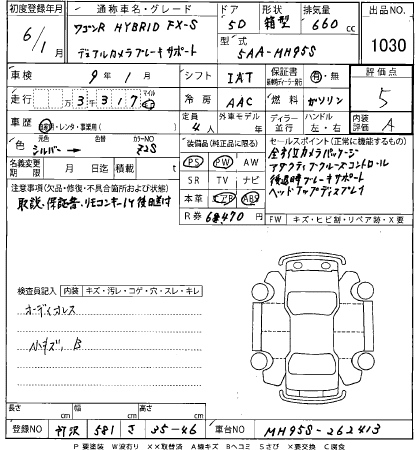 初度登録年月 通称車名・グレード ドア 形状 排気量 出品No.
6/1 ワゴンR HYBRID FX-S 5D 箱型 660 cc 1030
デュアルカメラブレーキサポート 型式 5AA-MH95S
車検 9年 1月 シフト IAT 保証書 有・無 評価点
走行 万 3千317 マイル km 冷房 AAC 燃料 ガソリン 5
車歴 自家用・レンタ・事業用( ) 定員 4人 外車モデル 年 ディーラー 並行 ハンドル 左・右 内装評価 A
色 元色 シルバー → 色替 カラーNO Z2S 装備品(純正品に限る) セールスポイント(正常に機能するもの)
名義変更期限 月 日迄 積載 t PS PW AW 全方位カメラパッケージ
注意事項(欠品・修復・不具合箇所および状態) SR TV ナビ アダプティブクルーズコントロール
取説・保証書・リモコンキー1ケ後日送付 本革 エアB ABS 後退時ブレーキサポート
R券 68470円 ヘッドアップディスプレイ
FW キズ・ヒビ割・リペア跡・X要
検査員記入 内装 キズ・汚レ・コゲ・穴・スレ・キレ
オーディオレス
小キズ、B
長さ cm 幅 cm 高さ cm
登録NO 所沢 581 さ 35-46 車台NO MH95S-262413
P要塗装 W波有り XX取替済 A線キズ Bヘコミ Sさび X要交換 C腐食